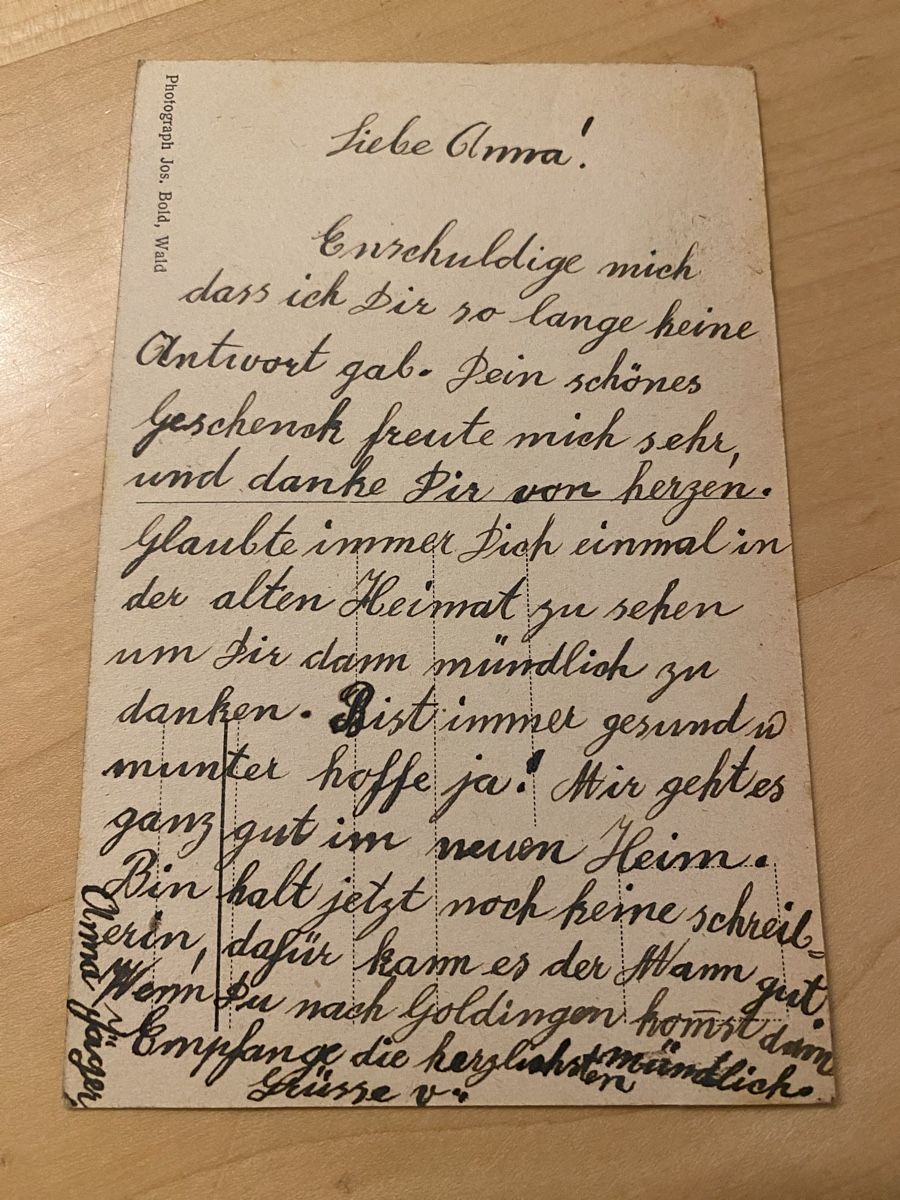 Photograph Jos. Bold, Wald
Liebe Anna!
Enschuldige mich
dass ich Dir so lange keine
Antwort gab. Dein schönes
Geschenck freute mich sehr,
und danke Dir von herzen.
Glaubte immer Dich einmal in
der alten Heimat zu sehen
um Dir dann mündlich zu
danken. Bist immer gesund u
munter hoffe ja! Mir geht es
ganz gut im neuen Heim.
Bin halt jetzt noch keine schreib=
erin, dafür kann es der Mann gut
Wenn Du nach Goldingen kom̅st dann
mündlich.
Empfange die herzlichsten
Grüsse v.
Anna Jäger